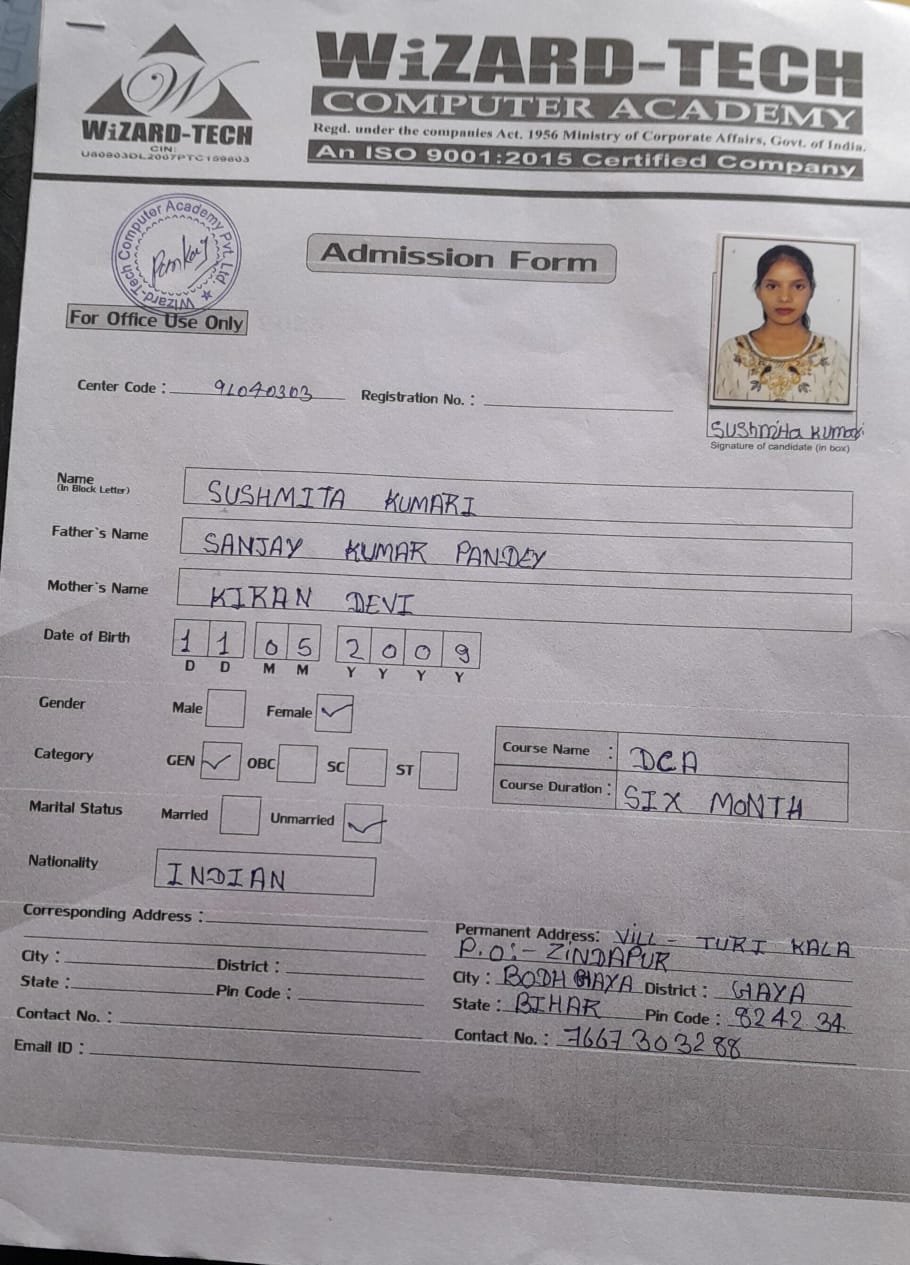 WiZARD-TECH
CIN:
U80903DL2007PTC159803
WiZARD-TECH
COMPUTER ACADEMY
Regd. under the companies Act. 1956 Ministry of Corporate Affairs, Govt. of India.
An ISO 9001:2015 Certified Company
Wizard-Tech Computer Academy Pvt. Ltd
Pankaj
Admission Form
For Office Use Only
Center Code : 91040303 Registration No. :
SUShmita KUMari
Signature of candidate (in box)
Name SUSHMITA KUMARI
(In Block Letter)
Father`s Name SANJAY KUMAR PANDEY
Mother`s Name KIRAN DEVI
Date of Birth 1 1 0 5 2 0 0 9
D D M M Y Y Y Y
Gender Male Female ✓
Category GEN ✓ OBC SC ST
Course Name : DCA
Course Duration : SIX MONTH
Marital Status Married Unmarried ✓
Nationality INDIAN
Corresponding Address :
City : District :
State : Pin Code :
Contact No. :
Email ID :
Permanent Address: VILL - TURI KALA
P.O:- ZINDAPUR
City : BODH GAYA District : GAYA
State : BIHAR Pin Code : 824234
Contact No. : 7667303288